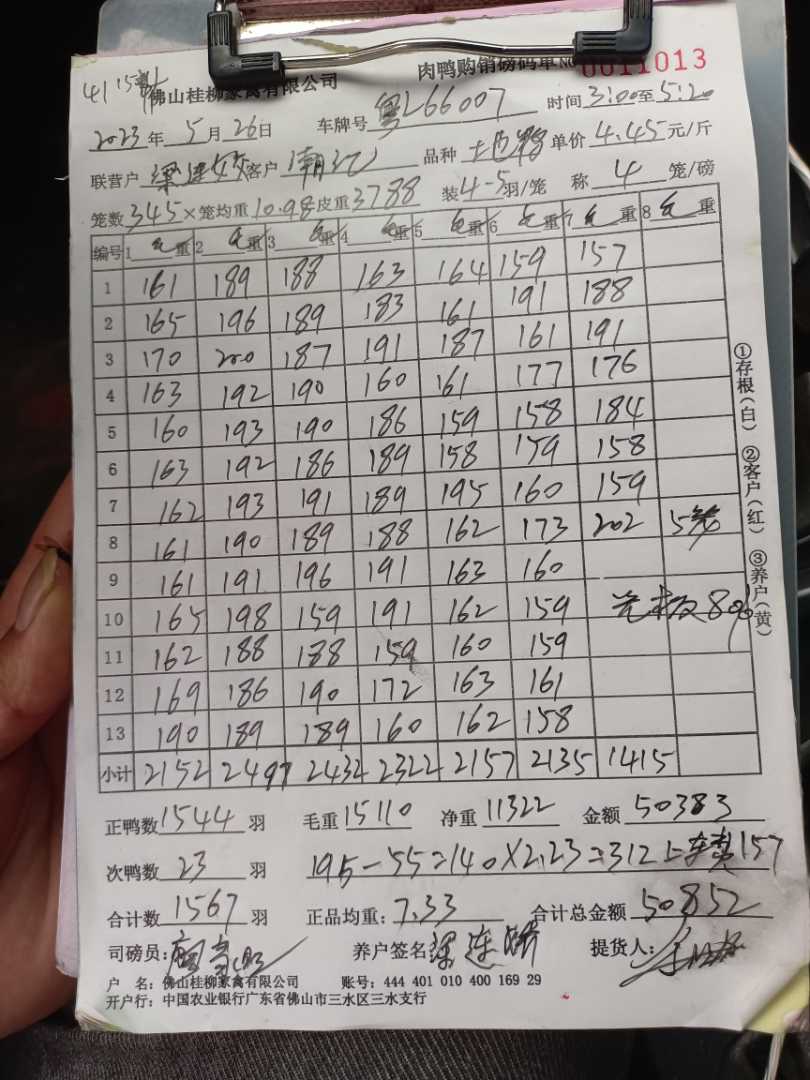 肉鸭购销磅码单 NO 0011013
佛山桂柳家禽有限公司
2023年 5月 26日 车牌号 粤L66007 时间 3:00至5:20
联营户 客户 品种 单价 4.45 元/斤
笼数 345 × 笼均重 10.98 皮重 3788 装 4-5 羽/笼 称 4 笼/磅
编号 1 毛重 2 毛重 3 毛重 4 毛重 5 毛重 6 毛重 7 毛重 8 毛重
1 161 189 188 163 164 159 157
2 165 196 189 183 161 191 188
3 170 200 187 191 187 161 191
4 163 192 190 160 161 177 176
5 160 193 190 186 159 158 184
6 163 192 186 189 158 159 158
7 162 193 191 189 195 160 159
8 161 190 189 188 162 173 202 5笼
9 161 191 196 191 163 160
10 165 198 159 191 162 159 80%
11 162 188 188 159 160 159
12 169 186 190 172 163 161
13 190 189 189 160 162 158
小计 2152 2497 2432 2322 2157 2135 1415
正鸭数 1544 羽 毛重 15110 净重 11322 金额 50383
次鸭数 23 羽 195-55=140×2.23=312 车费157
合计数 1567 羽 正品均重: 7.33 合计总金额 50852
司磅员: 养户签名 提货人:
户 名: 佛山桂柳家禽有限公司 账号: 444 401 010 400 169 29
开户行: 中国农业银行广东省佛山市三水区三水支行
①存根(白) ②客户(红) ③养户(黄)